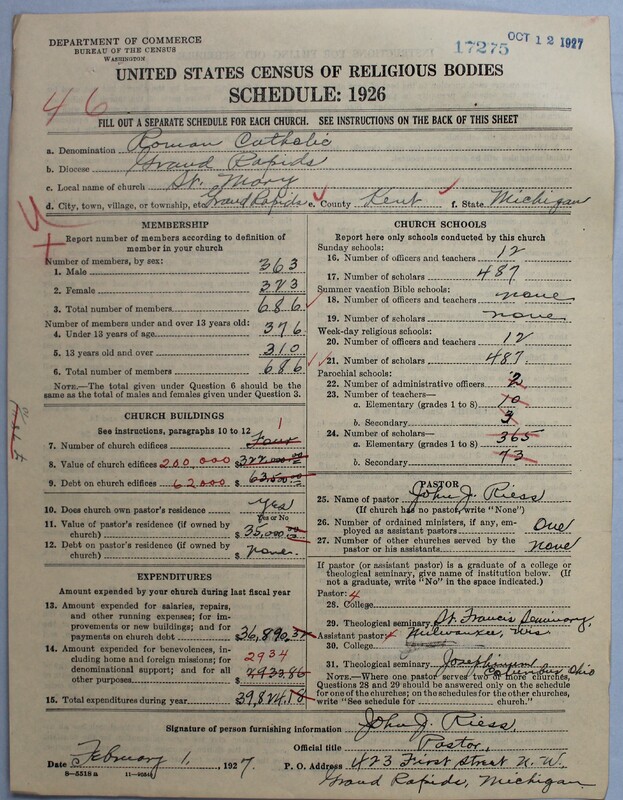 DEPARTMENT OF COMMERCE
BUREAU OF THE CENSUS
WASHINGTON
17275
OCT 12 1927
UNITED STATES CENSUS OF RELIGIOUS BODIES
SCHEDULE: 1926
46
FILL OUT A SEPARATE SCHEDULE FOR EACH CHURCH. SEE INSTRUCTIONS ON THE BACK OF THIS SHEET
a. Denomination Roman Catholic
b. Diocese Grand Rapids
c. Local name of church St. Mary
d. City, town, village, or township, etc. Grand Rapids e. County Kent f. State Michigan
MEMBERSHIP
Report number of members according to definition of
member in your church
Number of members, by sex:
1. Male 363
2. Female 323
3. Total number of members 686
Number of members under and over 13 years old:
4. Under 13 years of age 376
5. 13 years old and over 310
6. Total number of members 686
NOTE.—The total given under Question 6 should be the
same as the total of males and females given under Question 3.
CHURCH BUILDINGS
See instructions, paragraphs 10 to 12
1
7. Number of church edifices Four
8. Value of church edifices 200,000 $322,000.00
9. Debt on church edifices 62000 $63,500.00
10. Does church own pastor's residence Yes
Yes or No
11. Value of pastor's residence (if owned by
church) $35,000.00
12. Debt on pastor's residence (if owned by
church) $none.
EXPENDITURES
Amount expended by your church during last fiscal year
13. Amount expended for salaries, repairs,
and other running expenses; for im-
provements or new buildings; and for
payments on church debt $36,890.32
14. Amount expended for benevolences,
including home and foreign missions; for
denominational support; and for all
other purposes 2934 $2933.86
15. Total expenditures during year $39,824.18
CHURCH SCHOOLS
Report here only schools conducted by this church
Sunday schools:
16. Number of officers and teachers 12
17. Number of scholars 487
Summer vacation Bible schools:
18. Number of officers and teachers none
19. Number of scholars none
Week-day religious schools:
20. Number of officers and teachers 12
21. Number of scholars 487
Parochial schools:
22. Number of administrative officers 2
23. Number of teachers—
a. Elementary (grades 1 to 8) 10
b. Secondary 3
24. Number of scholars—
a. Elementary (grades 1 to 8) 365
b. Secondary 73
PASTOR
25. Name of pastor John J. Riess
(If church has no pastor, write "None")
26. Number of ordained ministers, if any, em-
ployed as assistant pastors One
27. Number of other churches served by the
pastor or his assistants none
If pastor (or assistant pastor) is a graduate of a college or
theological seminary, give name of institution below. (If
not a graduate, write "No" in the space indicated.)
Pastor: 4
28. College
29. Theological seminary St. Francis Seminary,
Assistant pastor: Milwaukee, Wis
30. College
31. Theological seminary Josephinum
Columbus Ohio
NOTE.—Where one pastor serves two or more churches,
Questions 28 and 29 should be answered only on the schedule
for one of the churches; on the schedules for the other churches,
write "See schedule for church."
Signature of person furnishing information John J. Riess,
Official title Pastor,
Date February 1, 1927. P. O. Address 423 First Street N. W.
8—5518 a 11—9584
Grand Rapids, Michigan